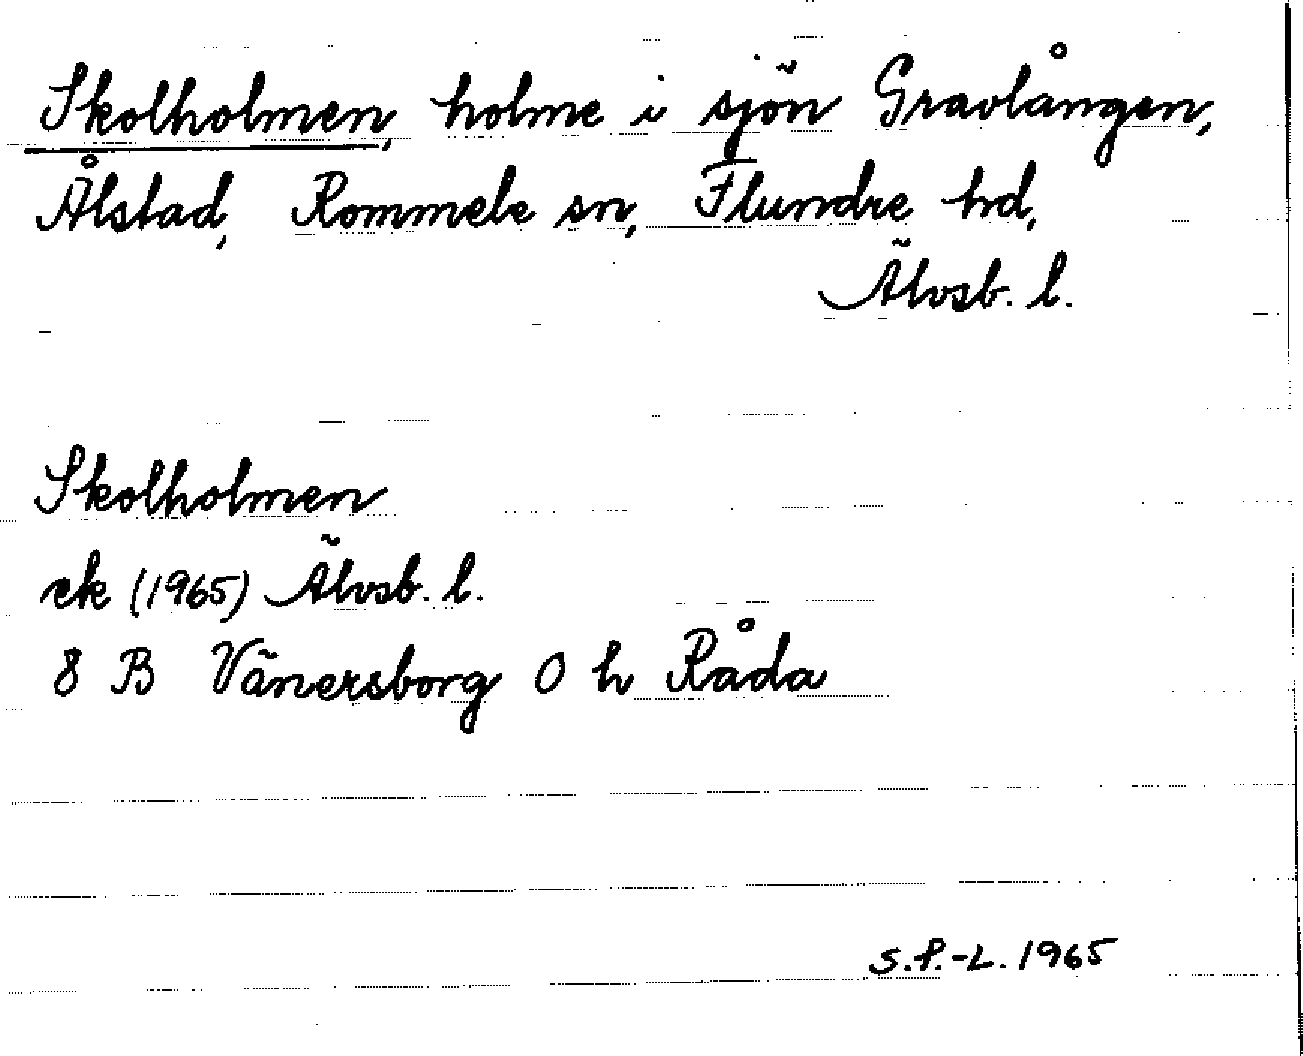 Skolholmen, holme i sjön Gravlången,
Ålstad, Rommele sn, Flundre hd,
Älvsb. l.
Skolholmen
ek (1965) Älvsb. l.
8 B Vänersborg 0 h Råda
S.P.-L. 1965